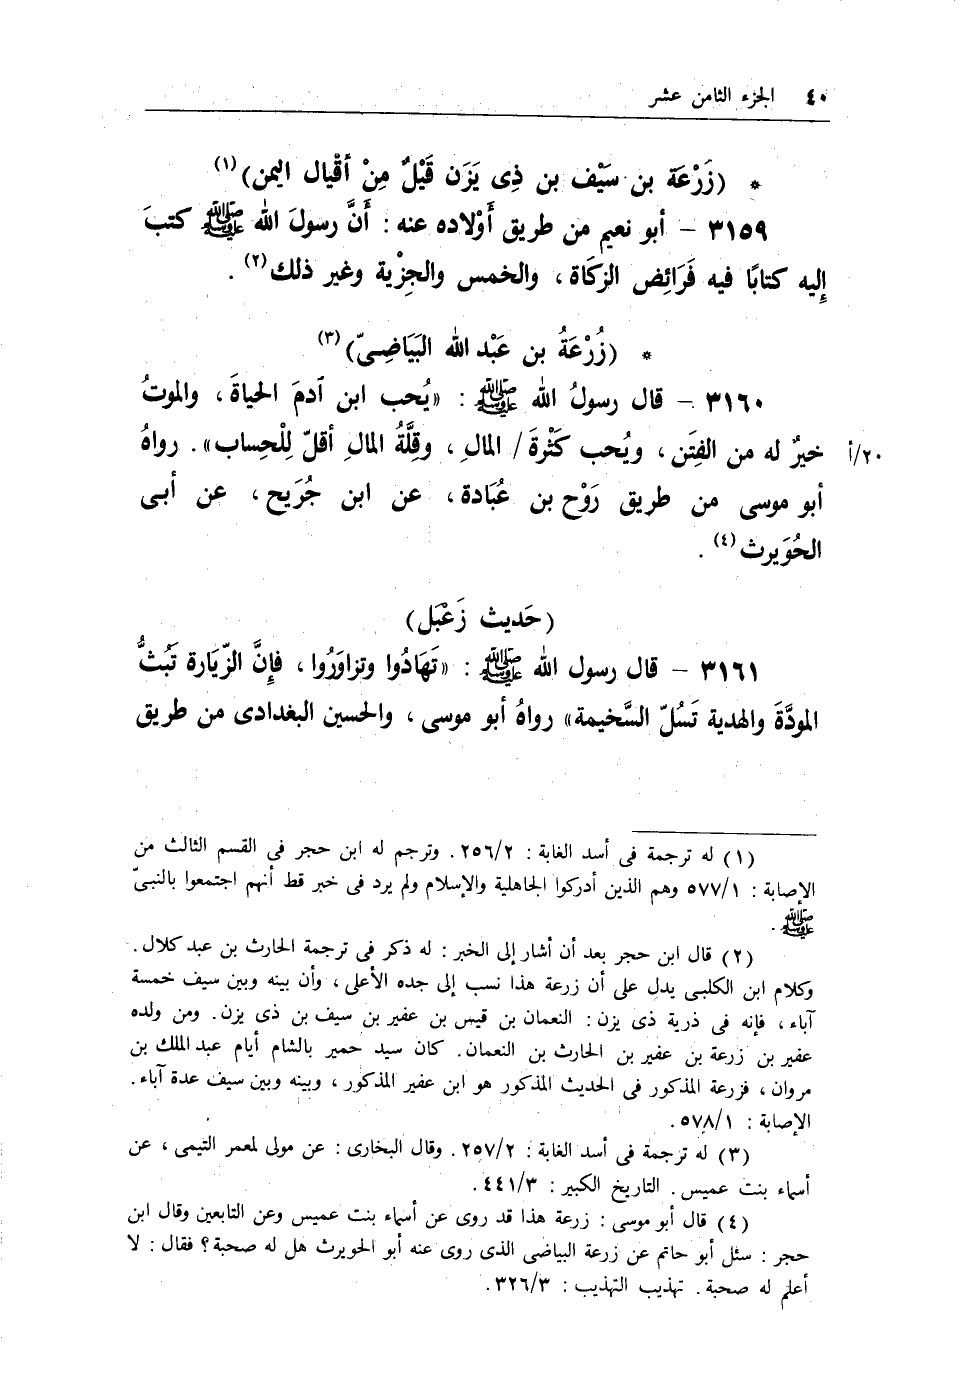 ٤٠ الجزء الثامن عشر
* (زَرْعَة بن سَيْف بن ذِى يَزَن قَيْلٌ مِنْ أقْيال اليمن)(١)
٣١٥٩ – أبو نعيم من طريق أوْلاده عنه : أنَّ رسولَ الله ﷺ كتبَ
إليه كتابًا فيه فَرَائِض الزكَاة ، والخمس والجِزْية وغير ذلك(٢) .
* (زُرْعَةُ بن عَبْد الله البَيَاضِىّ)(٣)
٣١٦٠ – قال رسولُ الله ﷺ : «يُحب ابن آدمَ الحياةَ ، والموتُ
خيرٌ له من الفِتَن ، ويُحب كَثْرةَ / المالِ ، وقِلَّةُ المالِ أقلّ لِلْحِساب» . رواهُ ٢٠/أ
أبو موسى من طريق رَوْح بن عُبَادة ، عن ابن جُرَيح ، عن أبى
الحُوَيرث(٤) .
(حَديث زَعْبَل)
٣١٦١ – قال رسول الله ﷺ : «تَهَادُوا وتزاوَرُوا ، فإنَّ الزّيَارة تَبُثُّ
المودَّةَ والهدية تَسُلّ السَّخيمة» رواهُ أبو موسى ، والحسين البغدادى من طريق
(١) له ترجمة فى أسد الغابة : ٢٥٦/٢. وترجم له ابن حجر فى القسم الثالث من
الإصابة : ٥٧٧/١ وهم الذين أدركوا الجاهلية والإسلام ولم يرد فى خبر قط أنهم اجتمعوا بالنبىّ
ﷺ .
(٢) قال ابن حجر بعد أن أشار إلى الخبر : له ذكر فى ترجمة الحارث بن عبد كلال .
وكلام ابن الكلبى يدل على أن زرعة هذا نسب إلى جده الأعلى ، وأن بينه وبين سيف خمسة
آباء ، فإنه فى ذرية ذى يزن : النعمان بن قيس بن عفير بن سيف بن ذى يزن. ومن ولده
عفير بن زرعة بن عفير بن الحارث بن النعمان. كان سيد حمير بالشام أيام عبد الملك بن
مروان ، فزرعة المذكور فى الحديث المذكور هو ابن عفير المذكور ، وبينه وبين سيف عدة آباء.
الإصابة : ٥٧٨/١.
(٣) له ترجمة فى أسد الغابة : ٢٥٧/٢. وقال البخارى : عن مولى لمعمر التيمى ، عن
أسماء بنت عميس. التاريخ الكبير : ٤٤١/٣.
(٤) قال أبو موسى : زرعة هذا قد روى عن أسماء بنت عميس وعن التابعين وقال ابن
حجر : سئل أبو حاتم عن زرعة البياضى الذى روى عنه أبو الحويرث هل له صحبة؟ فقال : لا
أعلم له صحبة. تهذيب التهذيب : ٣٢٦/٣.